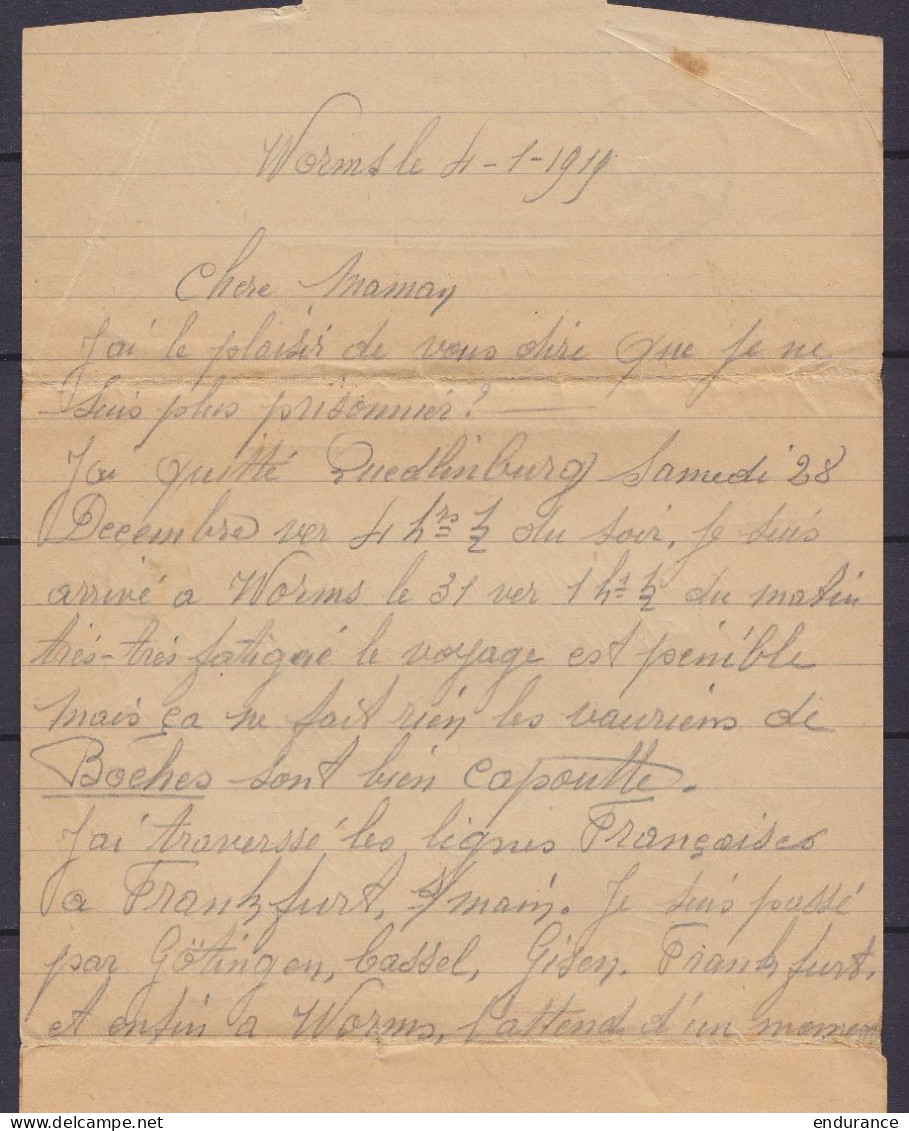 Worms le 4-1-1919
Chere Maman
J'ai le plaisir de vous dire que je ne
suis plus prisonnier? —
J'ai quitté Quedlinburg Samedi 28
Decembre ver 4 hrs ½ du soir, je suis
arrivé a Worms le 31 ver 1 hr ½ du matin
très-très fatigué le voyage est pénible
mais ça ne fait rien les vauriens de
Boches sont bien Capoutte.
J'ai traverssé les lignes Françaises
a Frankfurt, s/main. Je suis passé
par Götingen, Cassel, Gisen, Frankfurt,
et enfin a Worms, j'attend d'un moment
delcampe.net
endurance